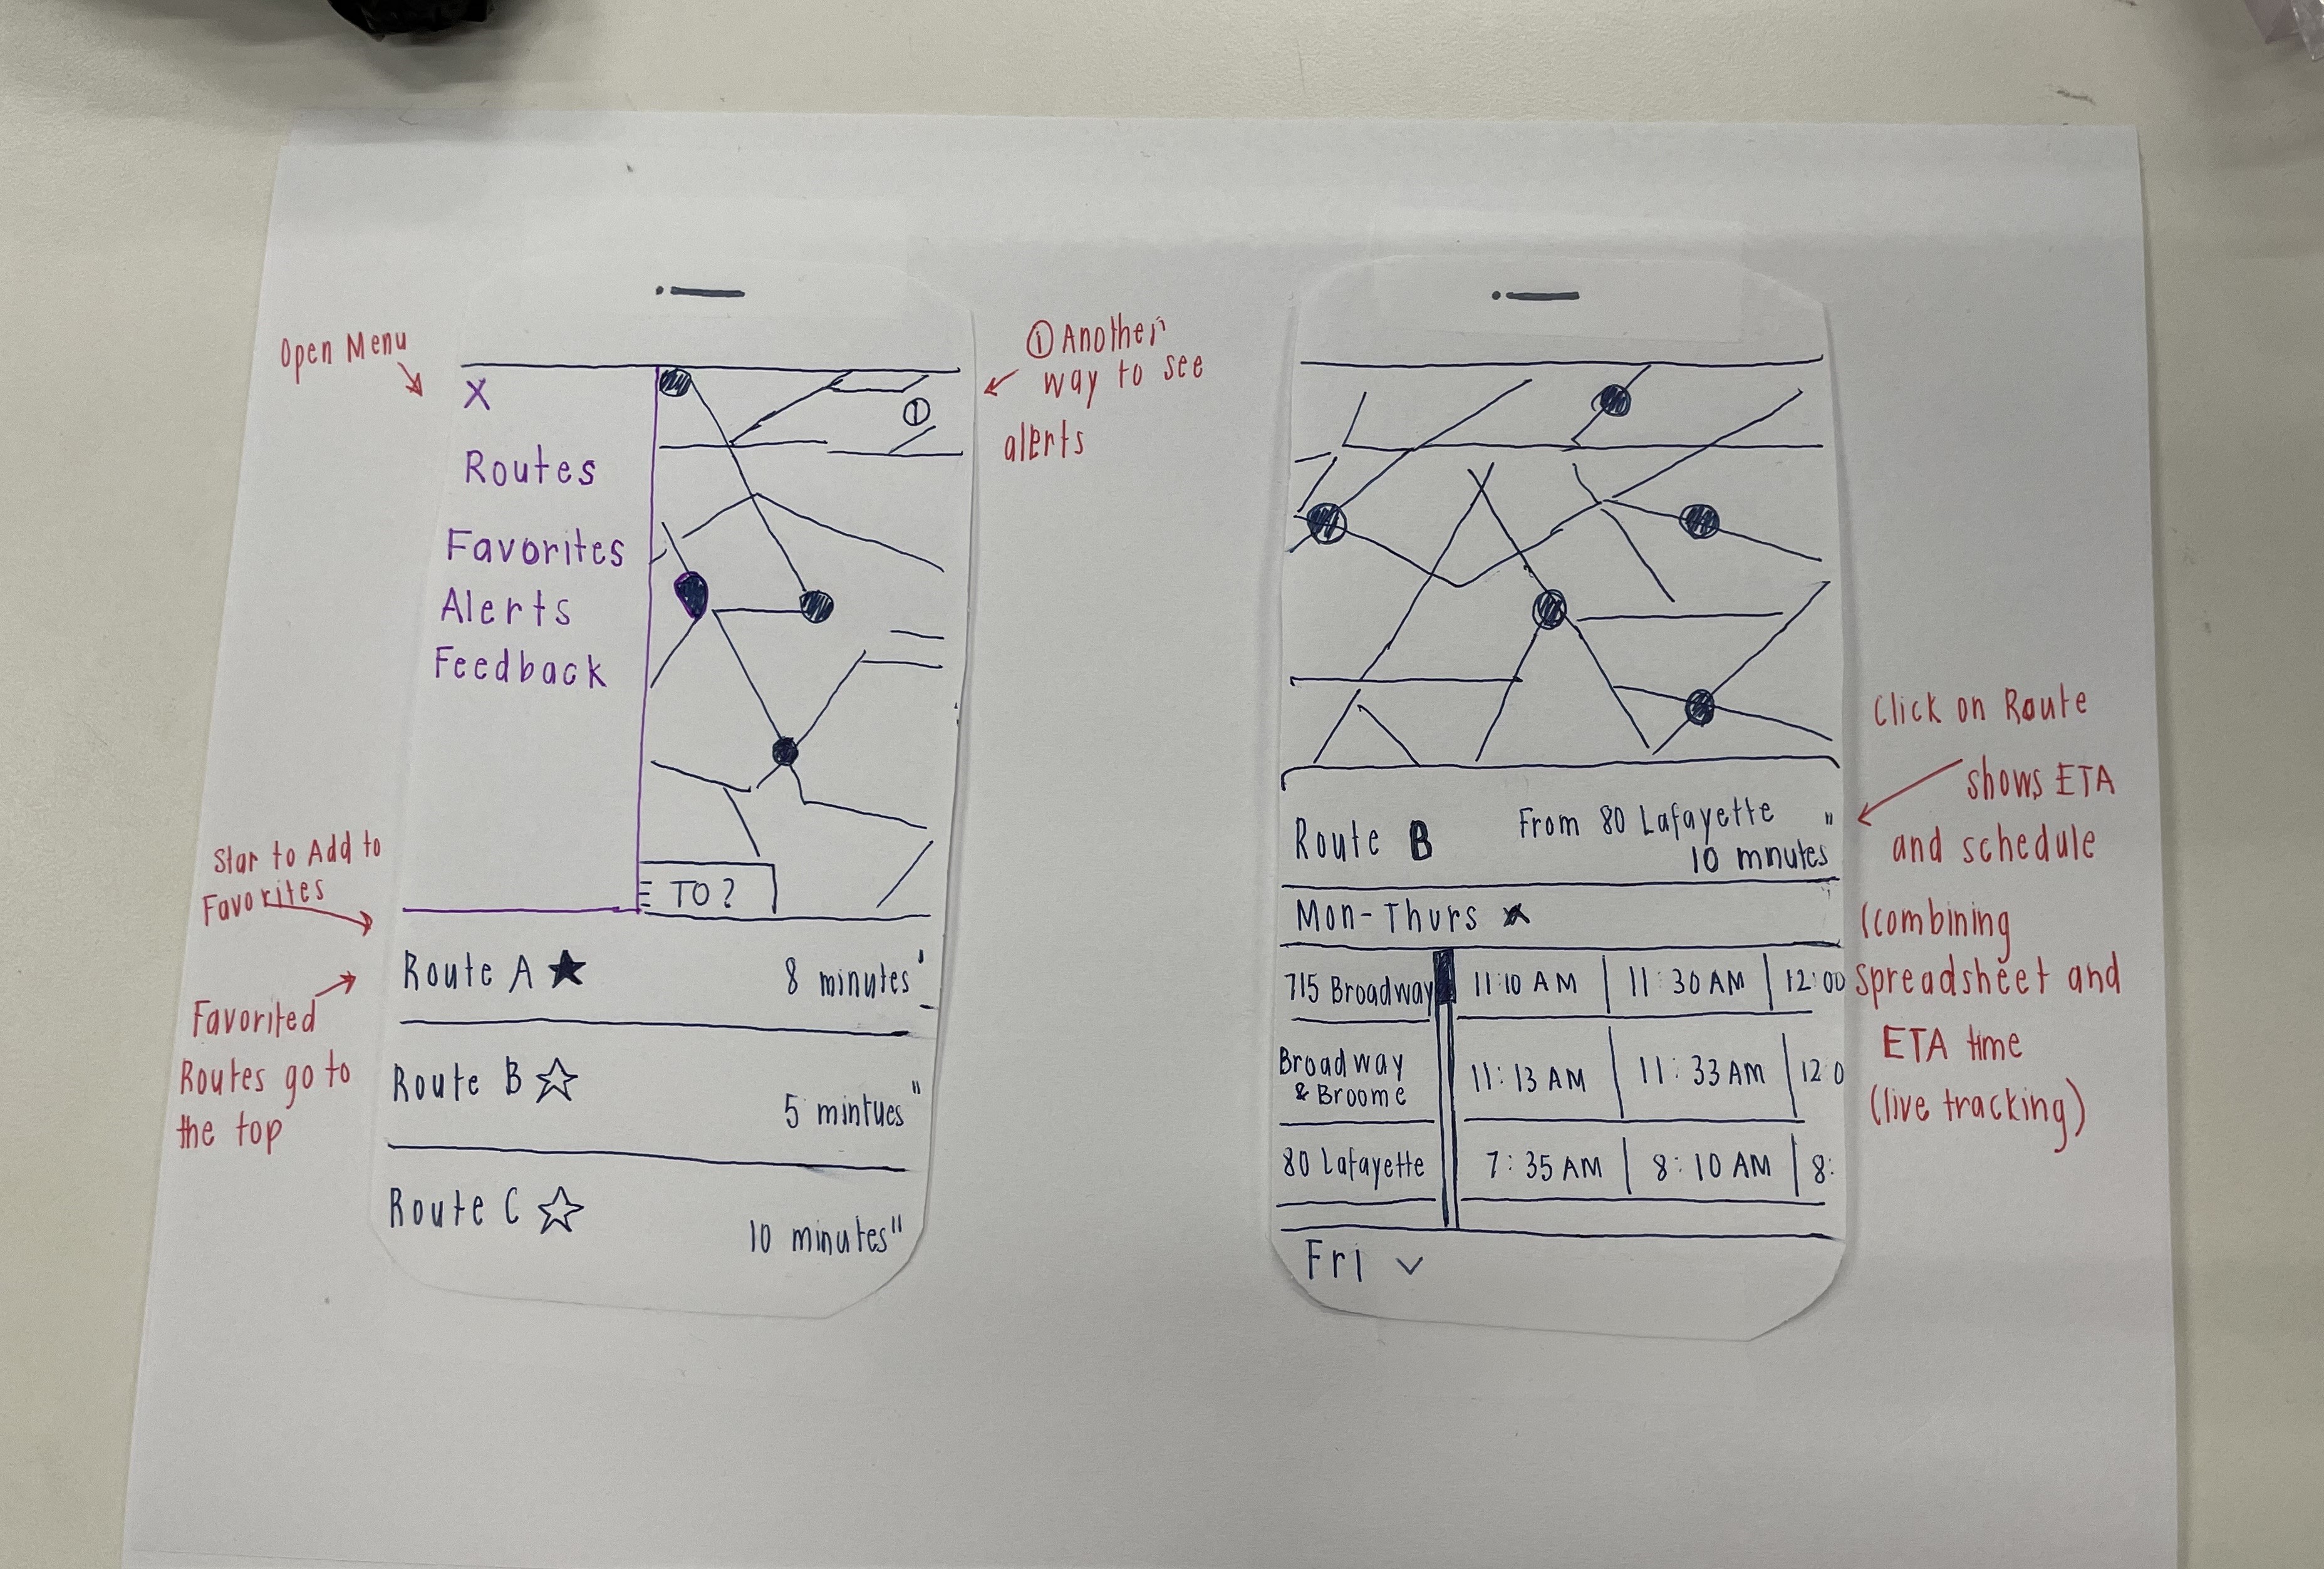 Open Menu
X
Routes
Favorites
Alerts
Feedback
① Another
way to see
alerts
①
TO ?
Star to Add to
Favorites
Favorited
Routes go to
the top
Route A ★ 8 minutes
Route B ☆ 5 mintues
Route C ☆ 10 minutes
Route B From 80 Lafayette
10 mnutes
Mon-Thurs
715 Broadway 11:10 AM 11:30 AM 12:00
Broadway
& Broome 11:13 AM 11:33 AM 12:0
80 Lafayette 7:35 AM 8:10 AM 8:
Fri
Click on Route
shows ETA
and schedule
(combining
spreadsheet and
ETA time
(live tracking)